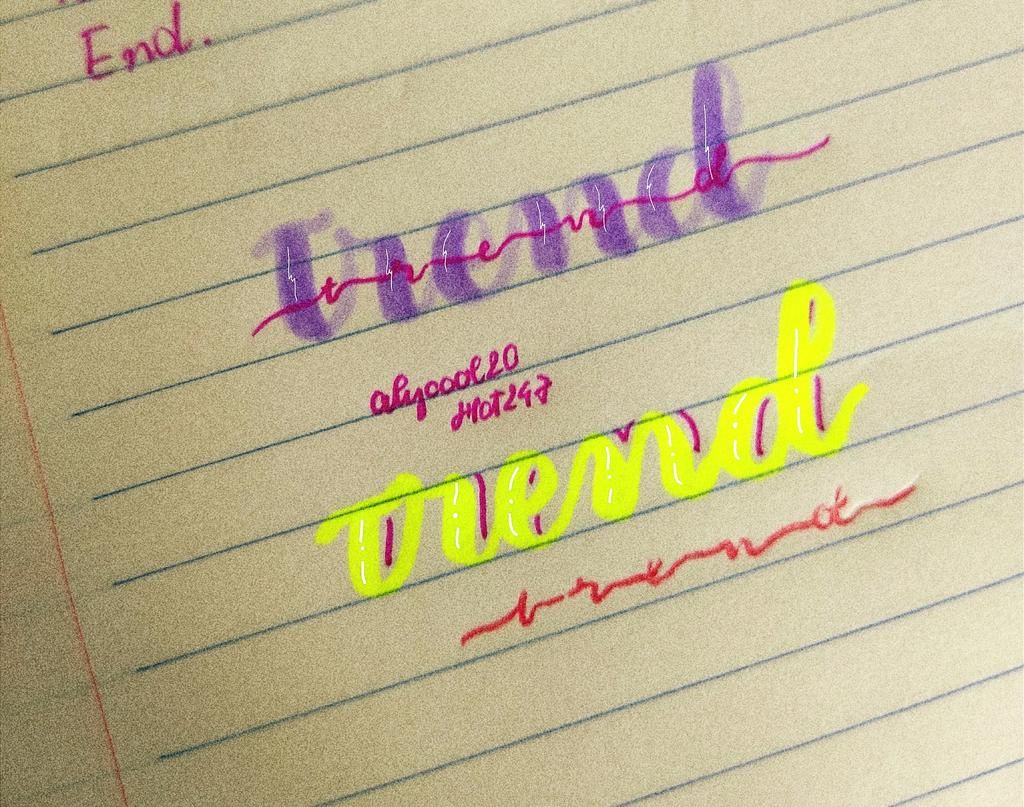 End.
trend
trend
alycool20
Hot247
trend
trend